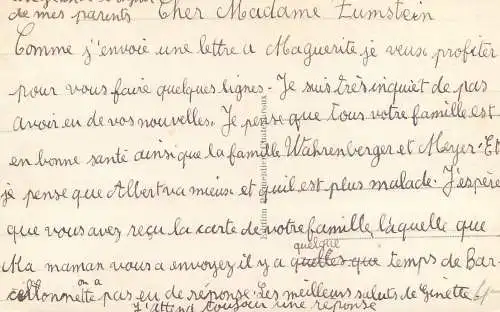 de mes parents Cher Madame Zumstein
Comme j'envoie une lettre a Maguerite je veux profiter
pour vous faire quelques lignes - Je suis très inquiet de pas
avoir eu de vos nouvelles. Je pense que tous votre famille est
en bonne santé ainsi que la famille Wahrenberger et Meyer. Et
je pense que Albert va mieux et qu'il est plus malade. J'espère
que vous avez reçu la carte de votre famille laquelle que
quelque
Ma maman vous a envoyez il y a quelles que temps de Bar-
on a
pas eu de réponse. Les meilleurs saluts de Ginette
J'attend toujour une réponse